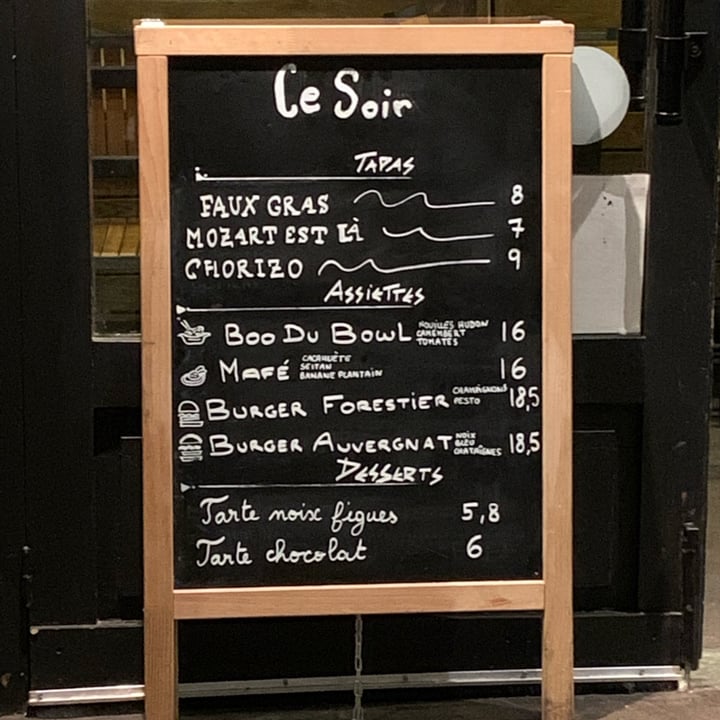 Ce Soir
TAPAS
FAUX GRAS 8
MOZART EST LÀ 7
CHORIZO 9
ASSIETTES
BOO DU BOWL NOUILLES HUDON CAMEMBERT TOMATES 16
MAFÉ CACAHUÈTE SEITAN BANANE PLANTAIN 16
BURGER FORESTIER CHAMPIGNONS PESTO 18,5
BURGER AUVERGNAT NOIX BLEU CHATAÎGNES 18,5
DESSERTS
Tarte noix figues 5,8
Tarte chocolat 6